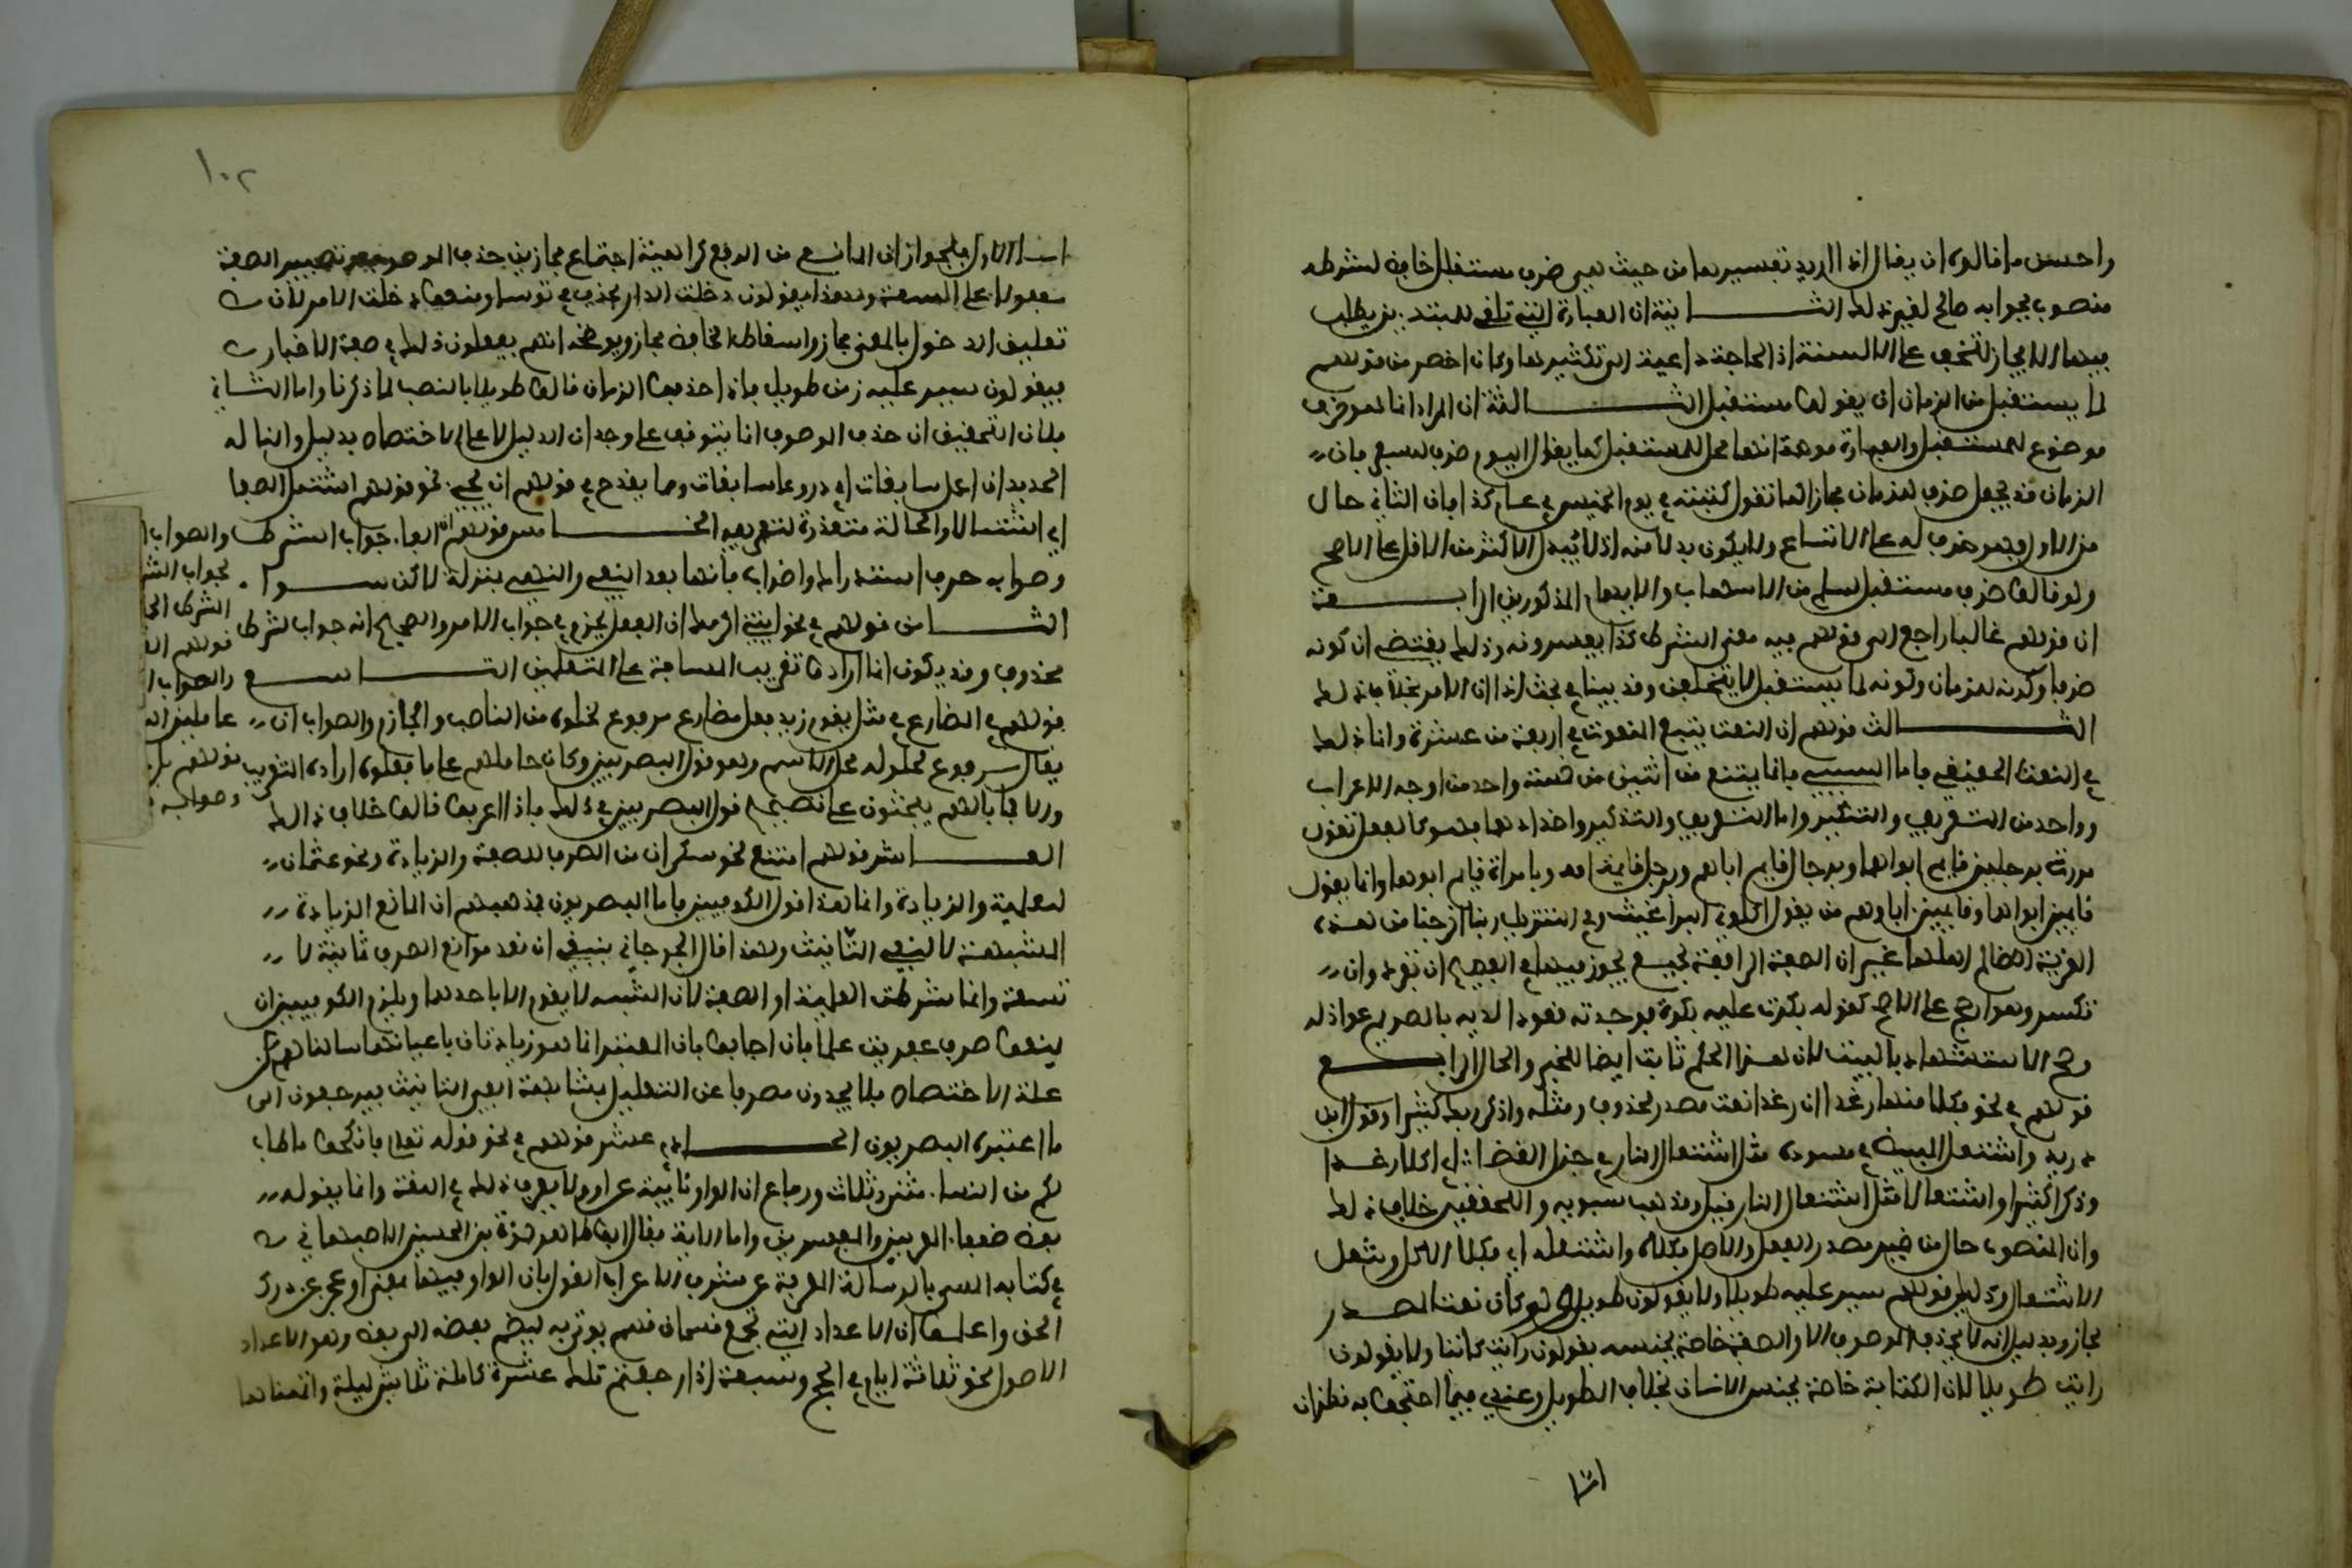 واحسن مما قالوه ان يقال اذا اريد تفسيرها من حيث هى ظرف مستقبل خافض لشرطه
منصوب بجوابه صالح لغير ذلك الثانية ان العبارة التى تلقى للمبتدئين يطلب
فيها الايجاز لتخف على الالسنة اذ الحاجة داعية الى تكثيرها وكان اخصر من قولهم
لما يستقبل من الزمان ان يقولوا مستقبل الثالثة ان المراد انها ظرف
موضوع للمستقبل والعبارة موهمة انها محل للمستقبل كما يقال اليوم ظرف للسفر فان
الزمان قد يجعل ظرفا للزمان مجازا كما تقول كتبته فى يوم الخميس فى عام كذا فان الثانى حال
من الاول فهو ظرف له على الاتساع ولا يكون بدلا منه اذ لا يبدل الاكثر من الاقل على الاصح
ولو قالوا ظرف مستقبل لسلم من الاسهاب والايهام المذكورين الرابعة
ان قولهم غالبا راجع الى قولهم فيه معنى الشرط كذا يفسرونه وذلك يقتضى ان كونه
ظرفا وكونه للزمان وكونه لما يستقبل لا يتخلفن وقد بينا فى بحث اذا ان الامر بخلاف ذلك
الثالث قولهم ان النعت يتبع المنعوت فى اربعة من عشرة وانما ذلك
فى النعت الحقيقى فاما السببى فانما يتبع فى اثنين من خمسة واحد من اوجه الاعراب
وواحد من التعريف والتنكير واما التذكير واضدادهما فهو كالفعل تقول
مررت برجلين قايم ابواهما وبرجال قايم اباؤهم وبرجل قايمة امه وبامراة قايم ابوها وانما يقول
قايمين ابواهما وقايمين اباؤهم من يقول اكلونى البراغيث وفى التنزيل ربنا اخرجنا من هذه
القرية الظالم اهلها غير ان الصفة الرافعة لجمع يجوز فيها فى الفصيح ان تفرد وان
تكسر وهو ارجح على الاصح كقوله بكرت عليه بكرة فوجدته قعودا لديه بالصريم عواذله
وصح الاستشهاد بالبيت لان هذا الحكم ثابت ايضا للخبر والحال الرابع
قولهم فى نحو فكلا منها رغدا ان رغدا نعت مصدر محذوف ومثله واذكر ربك كثيرا وقول ابن
دريد واشتعل المبيض فى مسوده مثل اشتعال النار فى جزل الغضا اى اكلا رغدا
وذكرا كثيرا واشتعالا مثل اشتعال النار قيل ومذهب سيبويه والمحققين خلاف ذلك
وان المنصوب حال من ضمير مصدر الفعل والاصل فكلاه واشتعله اى فكلا الاكل واشتعل
الاشتعال ودليل قولهم سير عليه طويلا ولا يقولون طويل ولو كان نعتا للمصدر
لجاز وبدليل انه لا يحذف الموصوف الا والصفة خاصة بجنسه يقولون رايت كاتبا ولا يقولون
رايت طويلا لان الكتابة خاصة بجنس الانسان بخلاف الطول وعندى فيما احتجوا به نظر ان
اما
١٠٢
اما الاول فلجواز ان المانع من الرفع كراهية اجتماع مجازين حذف الموصوف وتصيير الصفة
مفعولا على السعة ولهذا يقولون دخلت الدار بحذف فى توسعا ومنعوا دخلت الامر لان
تعليق الدخول بالمعنى مجاز واسقاط الخافض مجاز ويوضحه انهم يفعلون ذلك فى صفة الاخبار
فيقولون سير عليه زمن طويل فاذا حذفوا الزمان قالوا طويلا بالنصب لما ذكرنا واما الثانى
فلان التحقيق ان حذف الموصوف انما يتوقف على وجدان الدليل لا على الاختصاص بدليل والنا له
الحديد ان اعمل سابغات اى دروعا سابغات ومما يقدح فى قولهم ان يجيء نحو قولهم اشتمل الصما
اى الشملة والحالة متعذرة لتعريفه الخامس قولهم الفاء جواب الشرط والصواب ا
وصوابه حرف استدراك واضراب فانها بعد النفى والنهى بمنزلة لاكن سواء
الثامن قولهم فى نحو ايتنى اكرمك ان الفعل مجزوم فى جواب الامر والصحيح انه جواب لشرط
محذوف وقد يكون انما ارادوا تقريب المسافة على المتعلمين التاسع
قولهم فى المضارع فى مثل يقوم زيد فعل مضارع مرفوع لخلوه من الناصب والجازم والصواب ان
يقال مرفوع لحلوله محل الاسم وهو قول البصريين وكان حاملهم على ما فعلوه ارادة التقريب
والا فما بالهم يبحثون على تصحيح قول البصريين فى ذلك فاذا اعربوا قالوا خلاف ذلك
العاشر قولهم امتنع نحو سكران من الصرف للصفة والزيادة ونحو عثمان
للعلمية والزيادة وانما هذا قول الكوفيين فاما البصريون فمذهبهم ان المانع الزيادة
المشبهة لالفى التانيث ولهذا قال الجرجانى ينبغى ان تعد موانع الصرف ثمانية لا
تسعة وانما شرطت العلمية او الصفة لان الشبه لا يقوم الا باحدهما ويلزم الكوفيين ان
يمنعوا صرف عفريت علما فان اجابوا بان المعتبر انما هو زيادتان باعيانهما سالناهم عن
علة الاختصاص فلا يجدون مصرفا عن التعليل بمشابهة الفى التانيث فيرجعون الى
ما اعتبره البصريون الحادى عشر قولهم فى نحو قوله تعلى فانكحوا ما طاب
لكم من النساء مثنى وثلاث ورباع ان الواو نايبة عن او ولا يعرف ذلك فى اللغة وانما يقوله
بعض ضعفاء المعربين والمفسرين واما الاية فقال ابو طاهر حمزة بن الحسين الاصبهانى
فى كتابه المسمى بالرسالة المعربة عن شرف الاعراب القول بان الواو فيها بمعنى او عجز عن درك
الحق واعلموا ان الاعداد التى تجمع قسمان قسم يوتى به ليضم بعضه الى بعض وهو الاعداد
الاصول نحو ثلاثة ايام فى الحج وسبعة اذا رجعتم تلك عشرة كاملة ثلاثين ليلة واتممناها
لجواب الشر
الشرط
قولهم
والصواب ا
قولهم بل
وصوابه